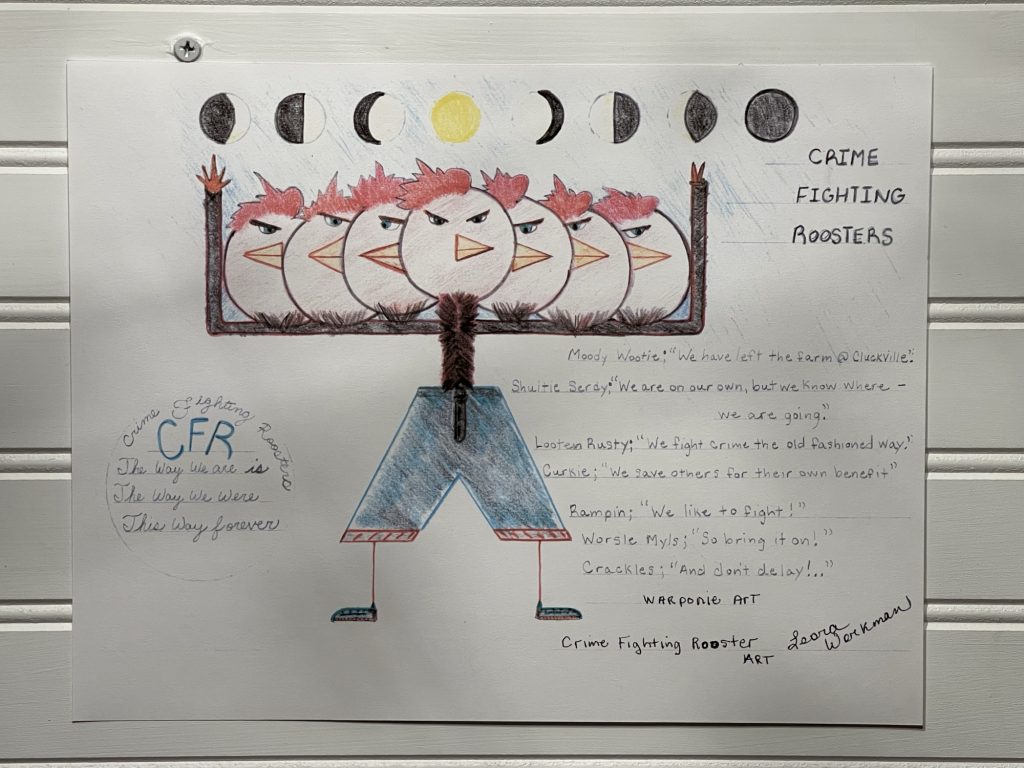 CRIME
FIGHTING
ROOSTERS
Moody Wootie; "We have left the farm @ Cluckville".
Shuitie Serdy; "We are on our own, but we know where -
we are going."
Looten Rusty; "We fight crime the old fashioned way."
Curkie; "We save others for their own benefit"
Rampin; "We like to fight!"
Worsle Myls; "So bring it on!"
Crackles; "And don't delay!..."
WARPONIE ART
Crime Fighting Rooster
ART
Leora
Workman
Crime Fighting Roosters
CFR
The Way We are is
The Way We Were
This Way forever